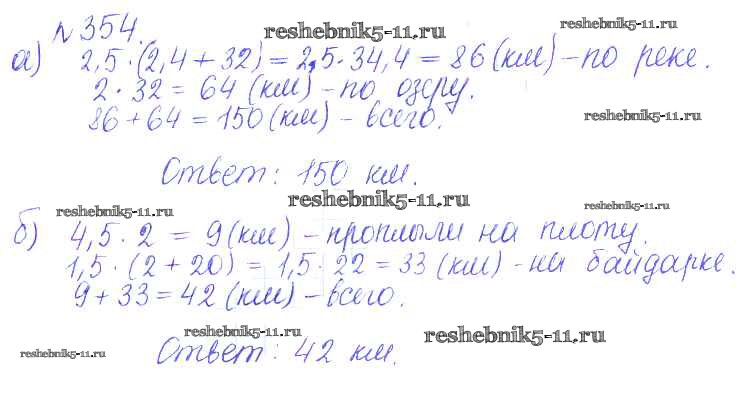 №354. reshebnik5-11.ru
а) 2,5·(2,4+32) = 2,5·34,4 = 86 (км) – по реке.
2·32 = 64 (км) – по озеру.
86+64 = 150 (км) – всего. reshebnik5-11.ru
Ответ: 150 км.
reshebnik5-11.ru
reshebnik5-11.ru reshebnik5-11.ru
б) 4,5·2 = 9 (км) – проплыли на плоту.
1,5·(2+20) = 1,5·22 = 33 (км) – на байдарке.
9+33 = 42 (км) – всего.
reshebnik5-11.ru reshebnik5-11.ru
reshebnik5-11.ru Ответ: 42 км.